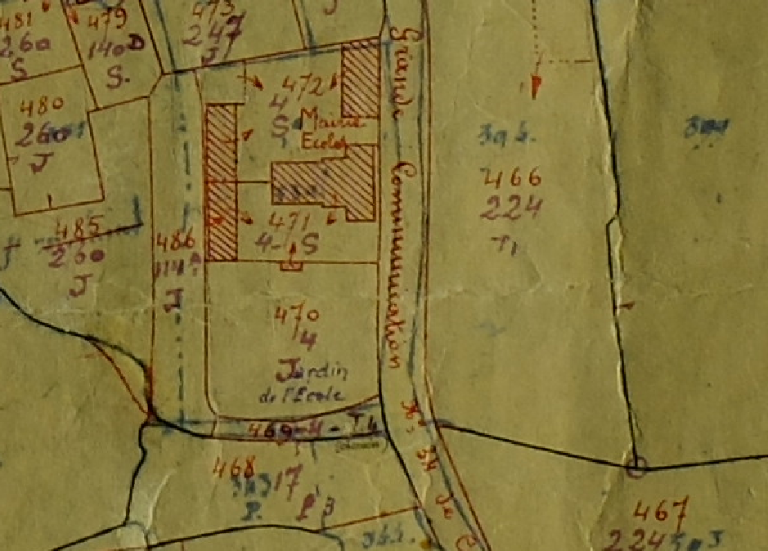 481
260
S
479
140 D
S.
473
247
J
J
480
260
J
472
4
S
Mairie
Ecoles
Grande Communication
394.
466
224
T1
485
260
J
486
114
J
471
4 - S
470
4
Jardin
de l'Ecole
469 - 4 - T4
N: 34 de
468
17
P.
P 3
344.
467
224